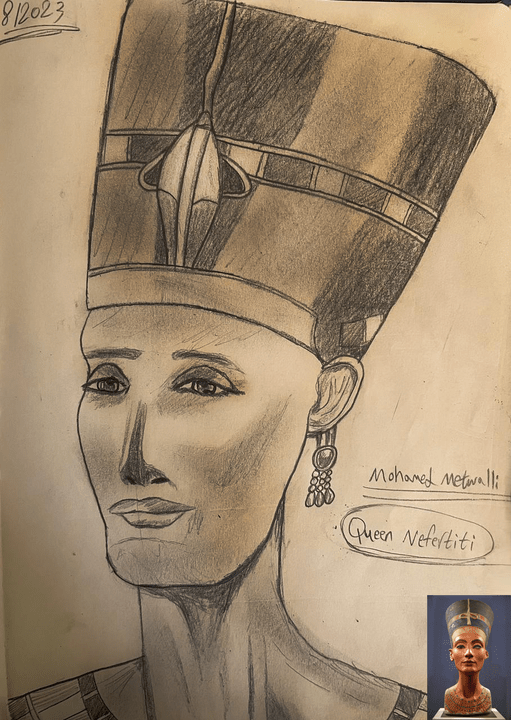 8/2023
Mohamed Metwalli
Queen Nefertiti